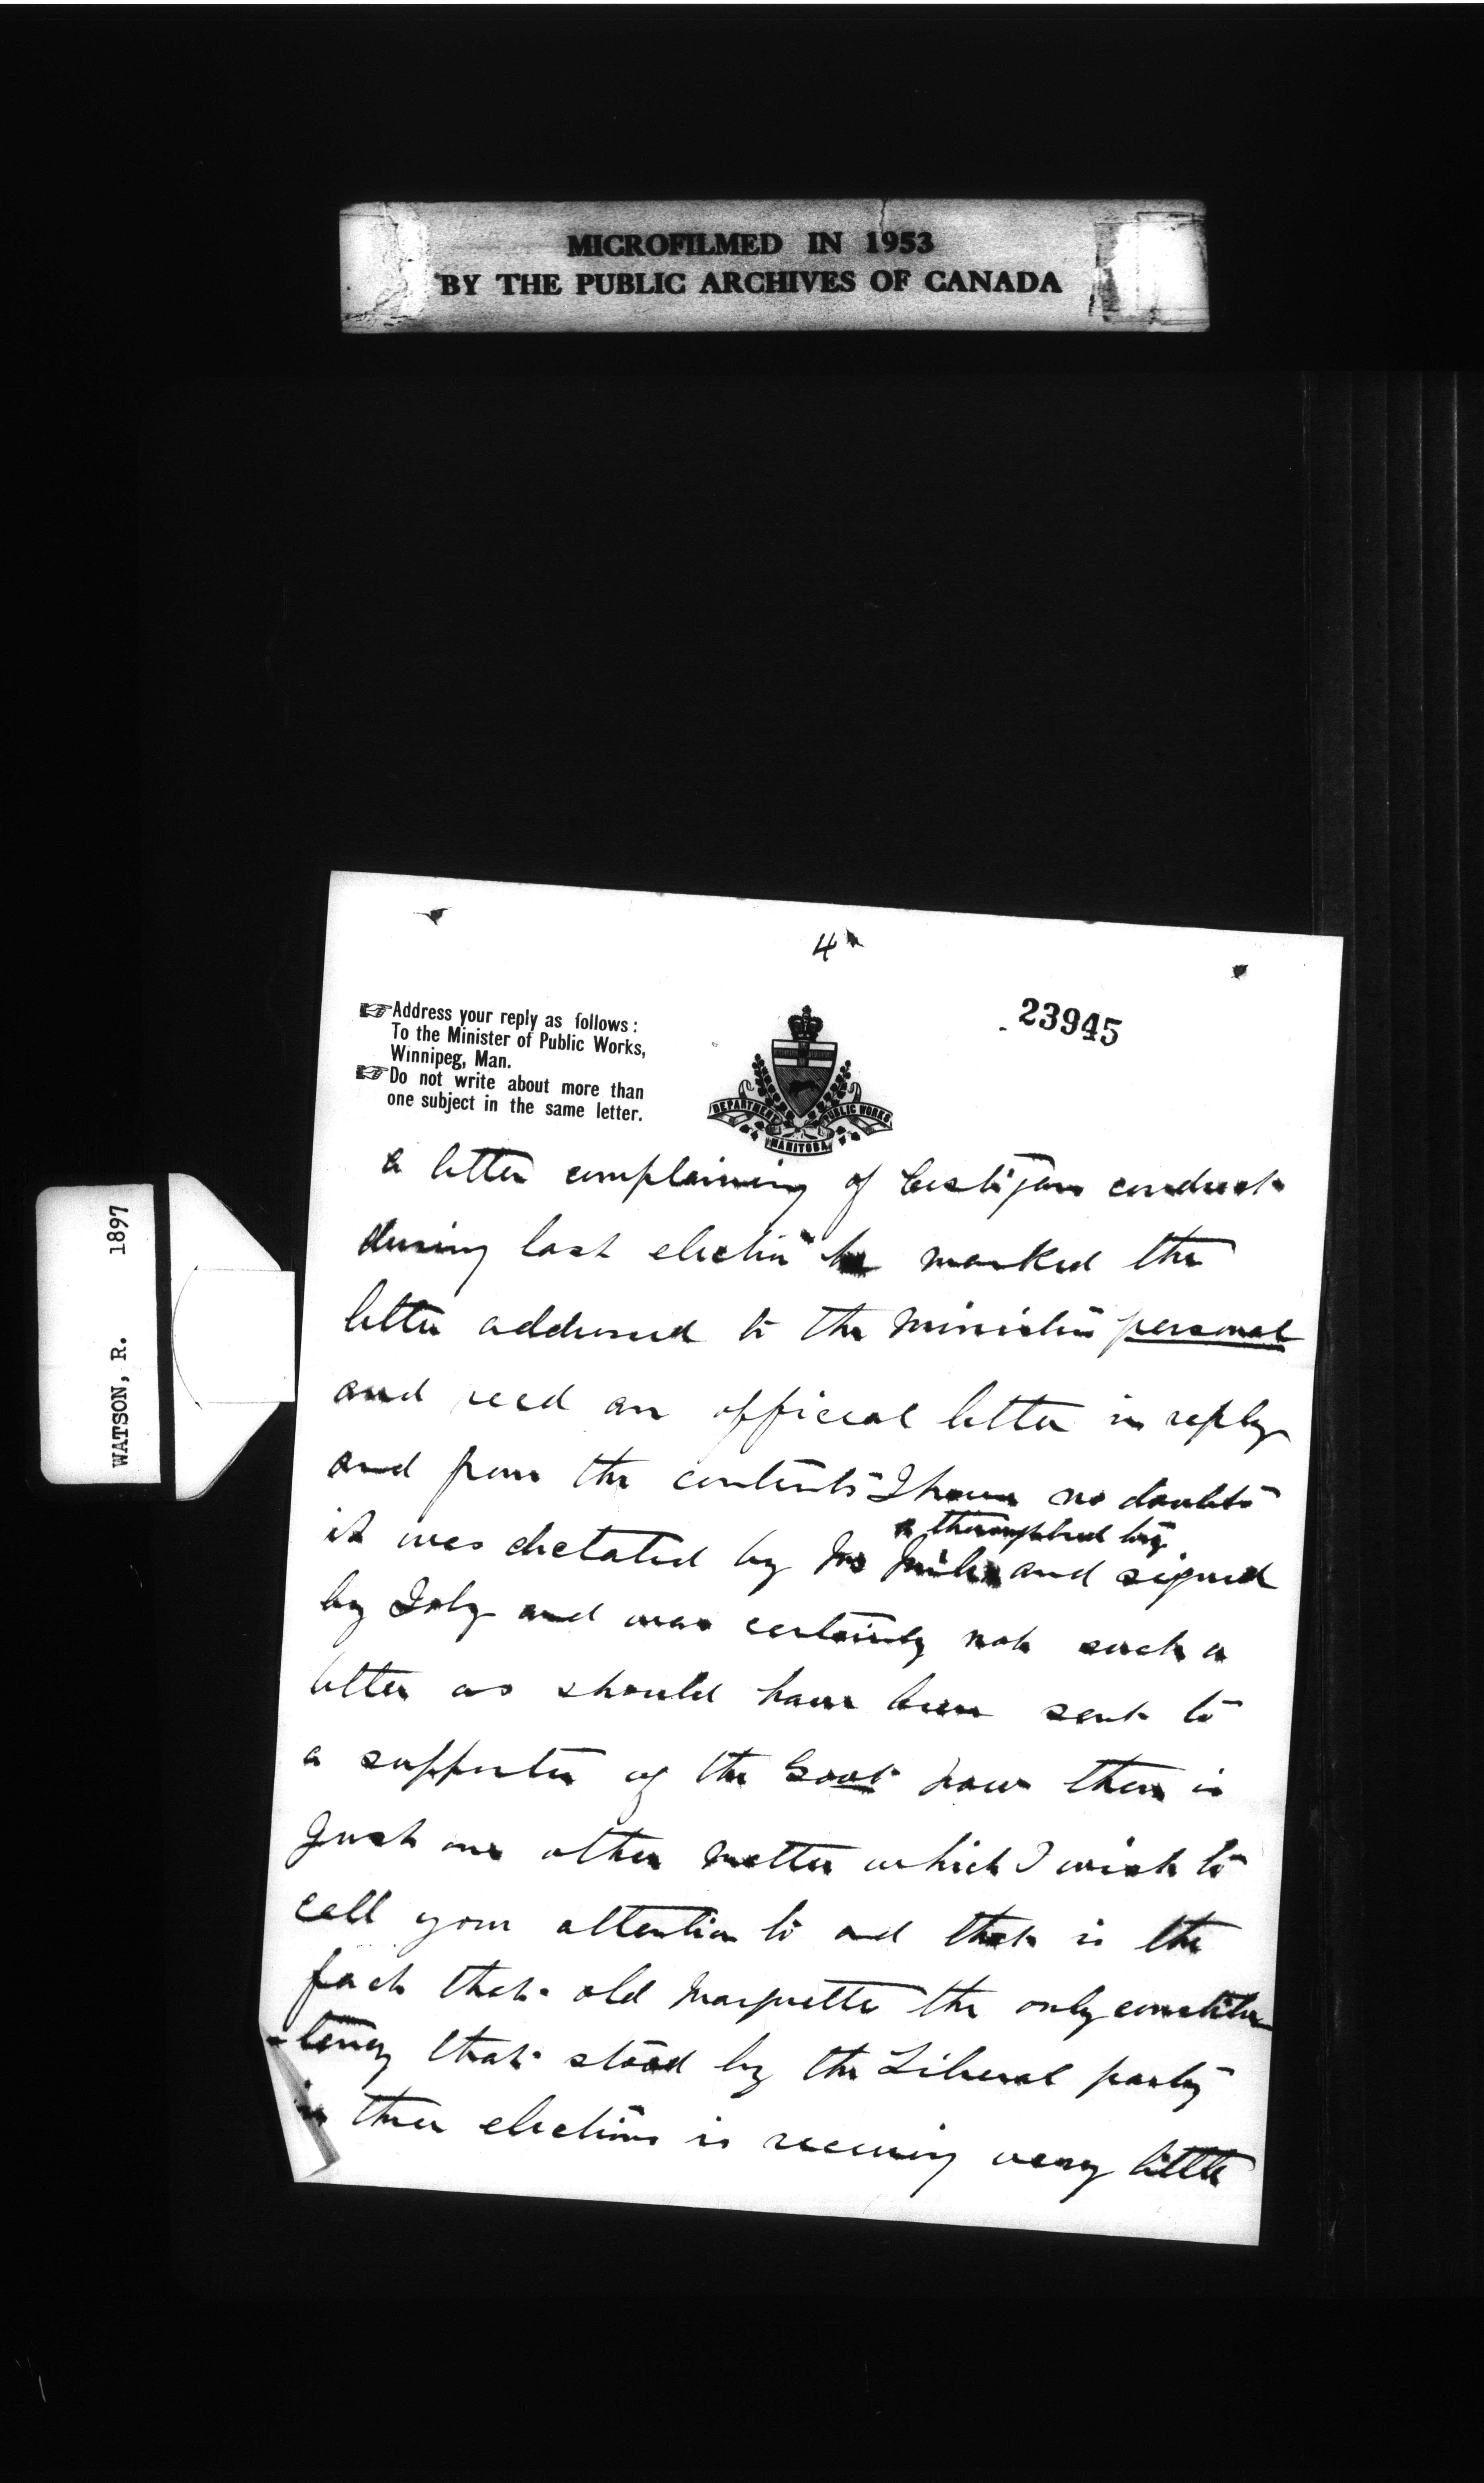 MICROFILMED IN 1953
BY THE PUBLIC ARCHIVES OF CANADA
WATSON, R. 1897
4
23945
Address your reply as follows:
To the Minister of Public Works,
Winnipeg, Man.
Do not write about more than
one subject in the same letter.
DEPARTMENT PUBLIC WORKS
MANITOBA
a letter complaining of Costigans conduct
during last election he marked the
letter addressed to the Minister personal
and recd an official letter in reply
and from the contents I have no doubt
a thoroughbred tory
it was dictated by Mr and signed
by Joly and was certainly not such a
letter as should have been sent to
a supporter of the Govt now there is
Just one other matter which I wish to
call your attention to and that is the
fact that old Marquette the only constitu
-tency that stood by the Liberal party
in three elections is receiving very little